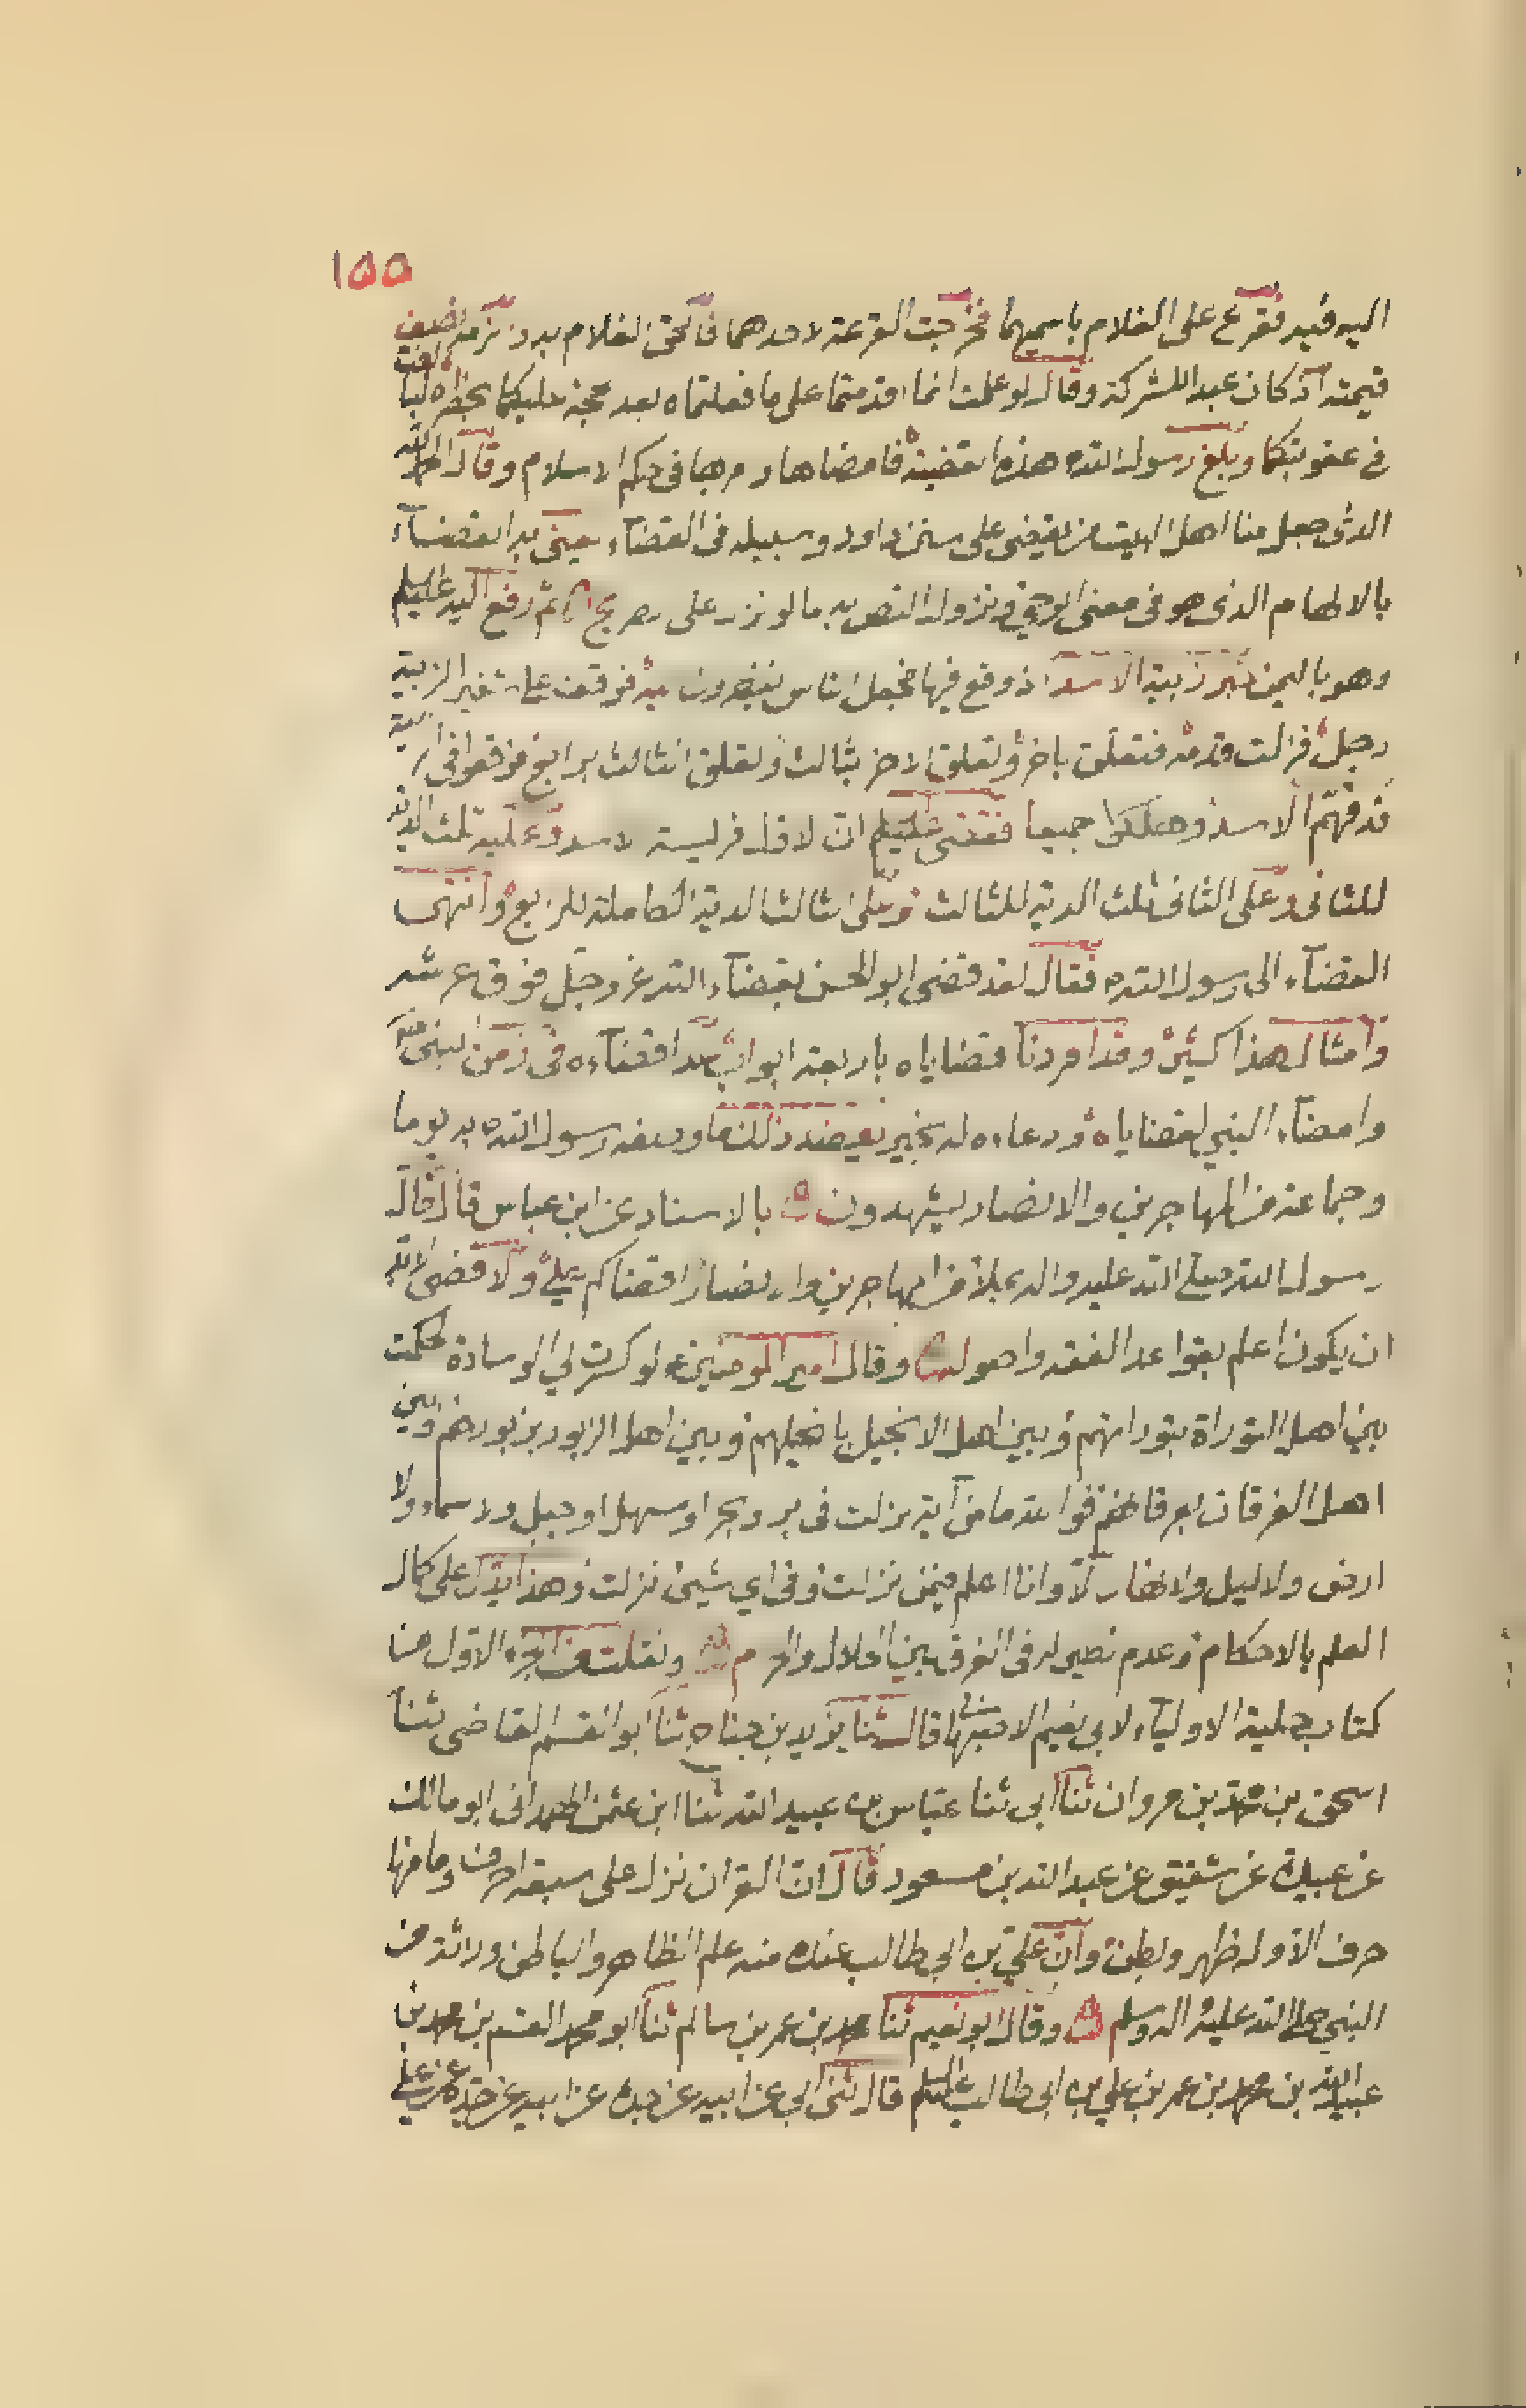 ١٥٥
اليه فيه فقرع على الغلام باسميهما فخرجت القرعة لاحدهما فالحق الغلام به والزمه نصف
قيمته اذ كان عبدا للشركة وقال لو علمت انما اقدمتما على ما فعلتماه بعد حجة عليكما بحظره لبالغت
فى عقوبتكما وبلغ رسول الله هذه القضية فامضاها وامر بها فى حكم الاسلام وقال الحمد لله
الذى جعل منا اهل البيت من يقضى على سنن داود وسبيله فى القضآء يعنى به القضآء
بالالهام الذى هو فى معنى الوحى ونزول النص به ما لو نزل على ثم رفع اليه عليه السلم
وهو باليمن خبر زبية الاسد اذ وقع فيها فجعل الناس ينظرون فيه فوقف على شفير الزبية
رجل فزلت قدمه فتعلق باخر وتعلق الاخر بثالث وتعلق الثالث برابع فوقعوا فى الزبية
فدقهم الاسد وهلكوا جميعا فقضى عليه السلم ان الاول فريسة الاسد وعليه ثلث الدية
للثانى وعلى الثانى ثلث الدية للثالث وعلى الثالث الدية الكاملة للرابع وانتهى
القضآء الى رسول الله فقال لقد قضى ابو الحسن بقضآء الله عز وجل فوق عرشه
وامثال هذا كثير وقد افردنا قضاياه باربعة ابواب احدها قضآءه فى زمن النبى
وامضآء النبي لقضاياه ودعاءه له بخير يعضد ذلك ما وصفه رسول الله به يوما
وجماعة من المهاجرين والانصار يشهدون بالاسناد عن ابن عباس قال قال
رسول الله صلى الله عليه واله بملأ من المهاجرين والانصار اقضاكم على ولا قضى الا به
ان يكون اعلم بقواعد الفقه واصوله وقال امير المومنين لو كسرت لي الوسادة لحكمت
بين اهل التوراة بتوراتهم وبين اهل الانجيل بانجيلهم وبين اهل الزبور بزبورهم وبين
اهل الفرقان بفرقانهم فوالله ما من آية نزلت فى بر وبحر او سهل او جبل ولا سماء ولا
ارض ولا ليل ولا نهار الا وانا اعلم فيمن نزلت وفى اي شيئ نزلت وهذا يدل على كمال
العلم بالاحكام وعدم نصير له فى الفرق بين الحلال والحرام ونقلت من الجزء الاول من
كتاب حلية الاوليآء لابى نعيم الاصبهانى قال ثنا يزيد بن جناح ثنا ابو القسم القاضى ثنا
اسحق بن محمد بن مروان ثنا ابى ثنا عباس بن عبيد الله ثنا ابن عثمن الهمدانى ابو مالك
عن عبيدة عن شقيق عن عبد الله بن مسعود قال ان القران نزل على سبعة احرف وما منها
حرف الا وله ظهر وبطن وان علي بن ابى طالب عنده منه علم الظاهر والباطن وراثة من
النبي صلى الله عليه واله وسلم وقال ابو نعيم ثنا محمد بن عمر بن سالم ثنا ابو محمد القسم بن محمد بن
عبد الله بن محمد بن عمر بن علي بن ابى طالب عليه السلم قال ثنى ابى عن ابيه عن جده عن ابيه عن جده عن على